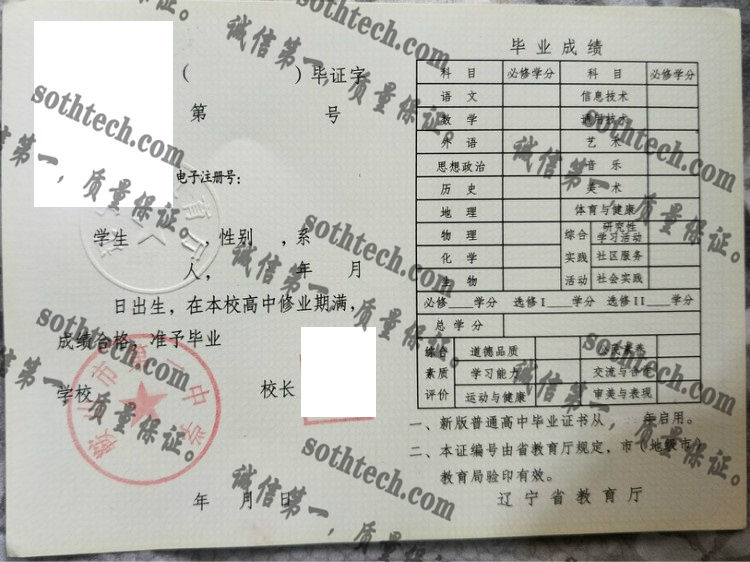 （ ）毕证字
第 号
电子注册号：
学生 ，性别 ，系
人， 年 月
日出生，在本校高中修业期满，
成绩合格，准予毕业
学校 校长
年 月 日
毕业成绩
科目 必修学分 科目 必修学分
语文 信息技术
数学 通用技术
外语 艺术
思想政治 音乐
历史 美术
地理 体育与健康
物理 综合 研究性学习活动
化学 实践 社区服务
生物 活动 社会实践
必修___学分 选修I___学分 选修II___学分
总学分
综合 道德品质
素质 学习能力 交流与合作
评价 运动与健康 审美与表现
一、新版普通高中毕业证书从 年启用。
二、本证编号由省教育厅规定，市（地级市）
教育局验印有效。
辽宁省教育厅
sothtech.com
诚信第一，质量保证。
sothtech.com
诚信第一，质量保证。
sothtech.com
诚信第一，质量保证。
sothtech.com
诚信第一，质量保证。
sothtech.com
诚信第一，质量保证。
sothtech.com
诚信第一，质量保证。
sothtech.com
诚信第一，质量保证。
sothtech.com
诚信第一，质量保证。